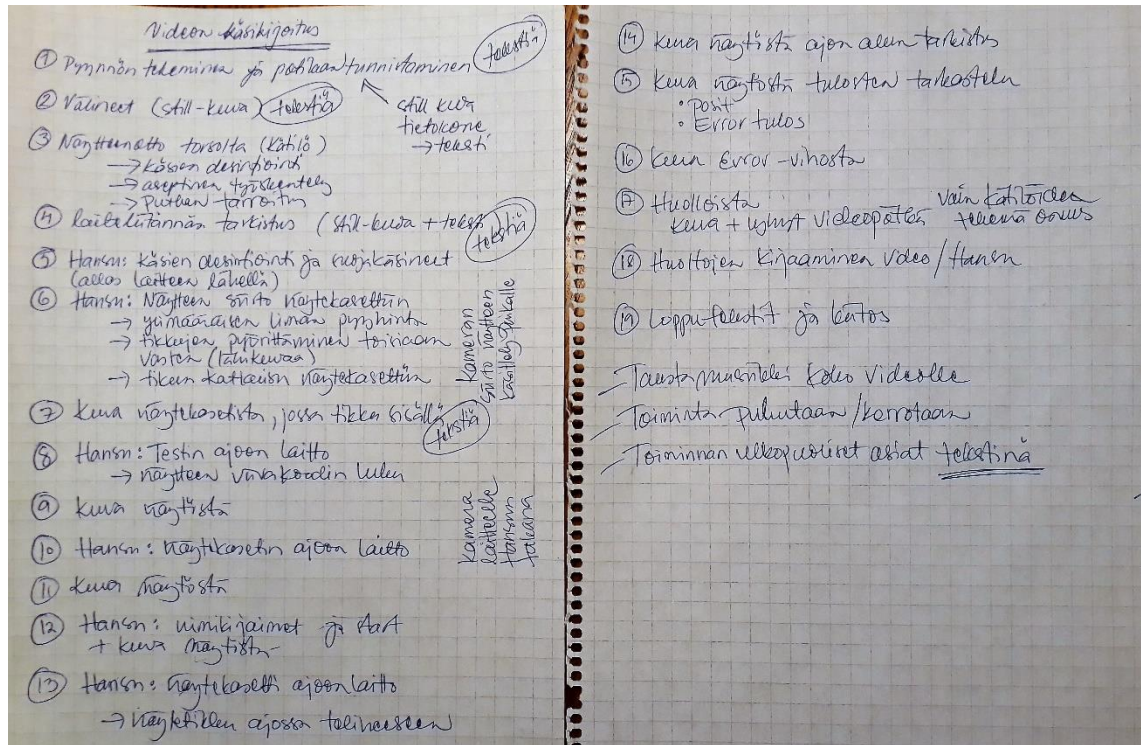 Videon käsikirjoitus
① Pyynnön tekeminen ja potilaan tunnistaminen tekstiä
still kuva
tietokone
→ teksti
② Välineet (still-kuva) tekstiä
③ Näytteenotto torsolta (Kätilö)
→ käsien desinfiointi
→ aseptinen työskentely
→ putken tarroitus
④ Laitekytännän tarkistus (still-kuva + teksti tekstiä
⑤ Hansu: Käsien desinfiointi ja suojakäsineet
(allas laitteen lähellä)
⑥ Hansu: Näytteen siirto näytekasettiin
→ ylimääräisen liman pyyhintä
→ tikkujen pyörittäminen toisiaan
vasten (lähikuvaa)
→ tikun katkaisu näytekasettiin
Kameran
siirto näytteen
käsittelypaikalle
⑦ Kuva näytekasetista, jossa tikku sisällä tekstiä
⑧ Hansu: Testin ajoon laitto
→ näytteen viivakoodin luku
⑨ Kuva näytöstä
Kamera
laitteelle
Hansun
takana
⑩ Hansu: näytekasetin ajoon laitto
⑪ Kuva näytöstä
⑫ Hansu: nimikirjaimet ja start
+ kuva näytöstä
⑬ Hansu: näytekasetti ajoon laitto
→ näytetikku ajossa telineeseen
⑭ Kuva näytöstä ajon alun tarkistus
⑮ Kuva näytöstä tulosten tarkastelu
• Posit
• Error tulos
⑯ Kuva Error -vihosta
⑰ Huolloista
Kuva + lyhyt videopätkä vain kätilöiden
tekemä osuus
⑱ Huoltojen kirjaaminen video / Hansu
⑲ Lopputekstit ja kiitos
- Taustamusiikki koko videolle
- Toiminta puhutaan / kerrotaan
- Toiminnan ulkopuoliset asiat tekstinä